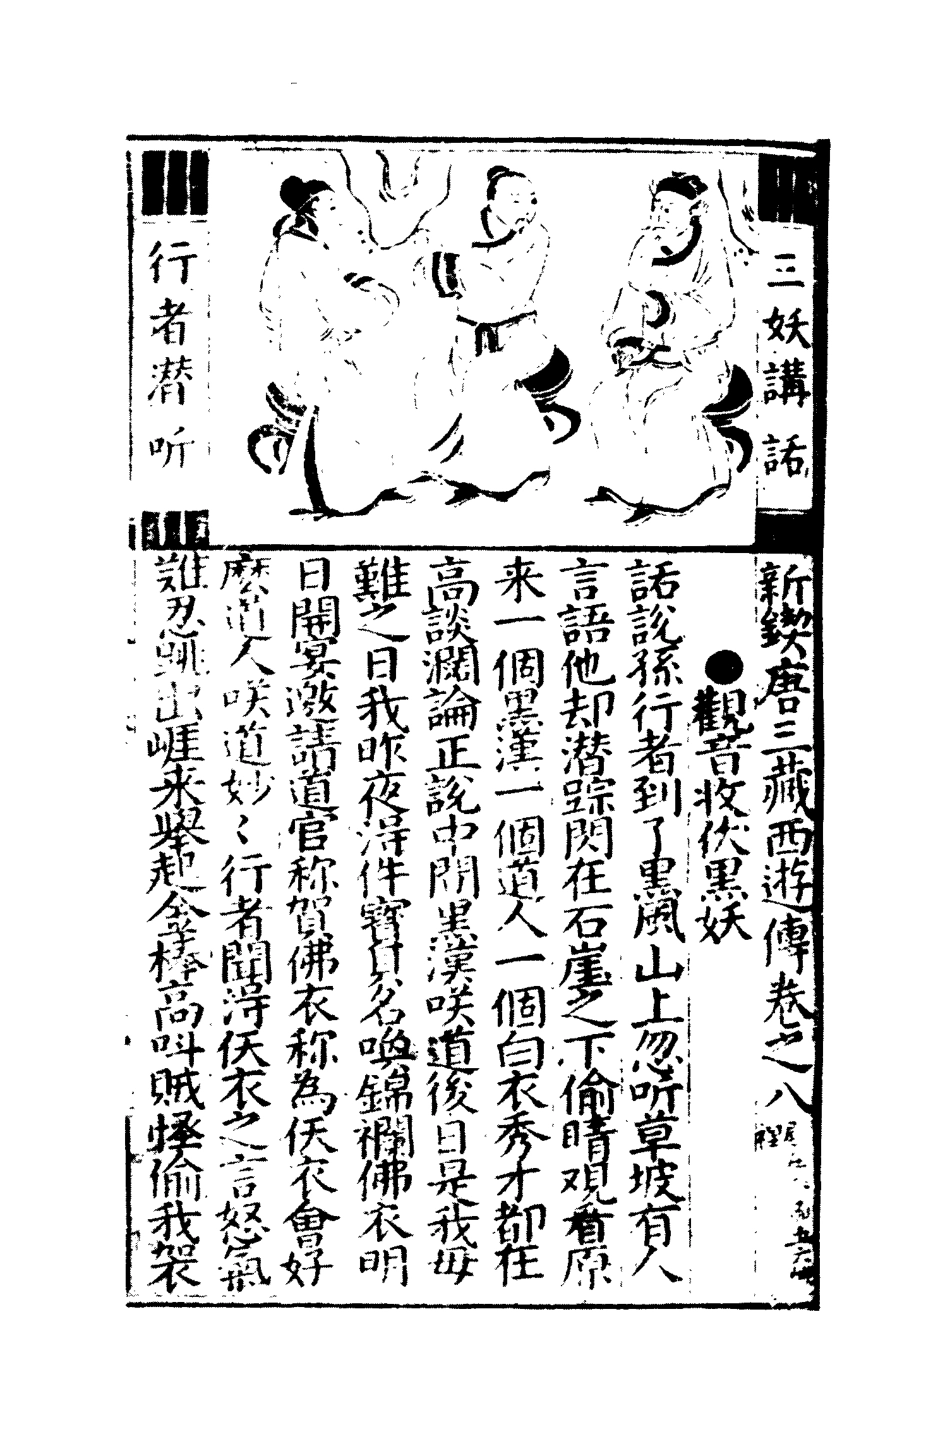 三妖講話
行者潜听
新鍥唐三藏西遊傳卷之八
●觀音收伏黑妖
話說孫行者到了黑風山上忽听草坡有人
言語他却潜踪閃在石崖之下偷睛观看原
来一個黑漢一個道人一個白衣秀才都在
高談濶論正說中間黑漢咲道後日是我母
難之日我昨夜淂件寳貝名喚錦襴佛衣明
日開宴邀請道官称賀佛衣称為仸衣會好
麽道人咲道妙〻行者聞淂仸衣之言怒氣
難忍跳出崕来舉起金棒高呌賊怪偷我袈